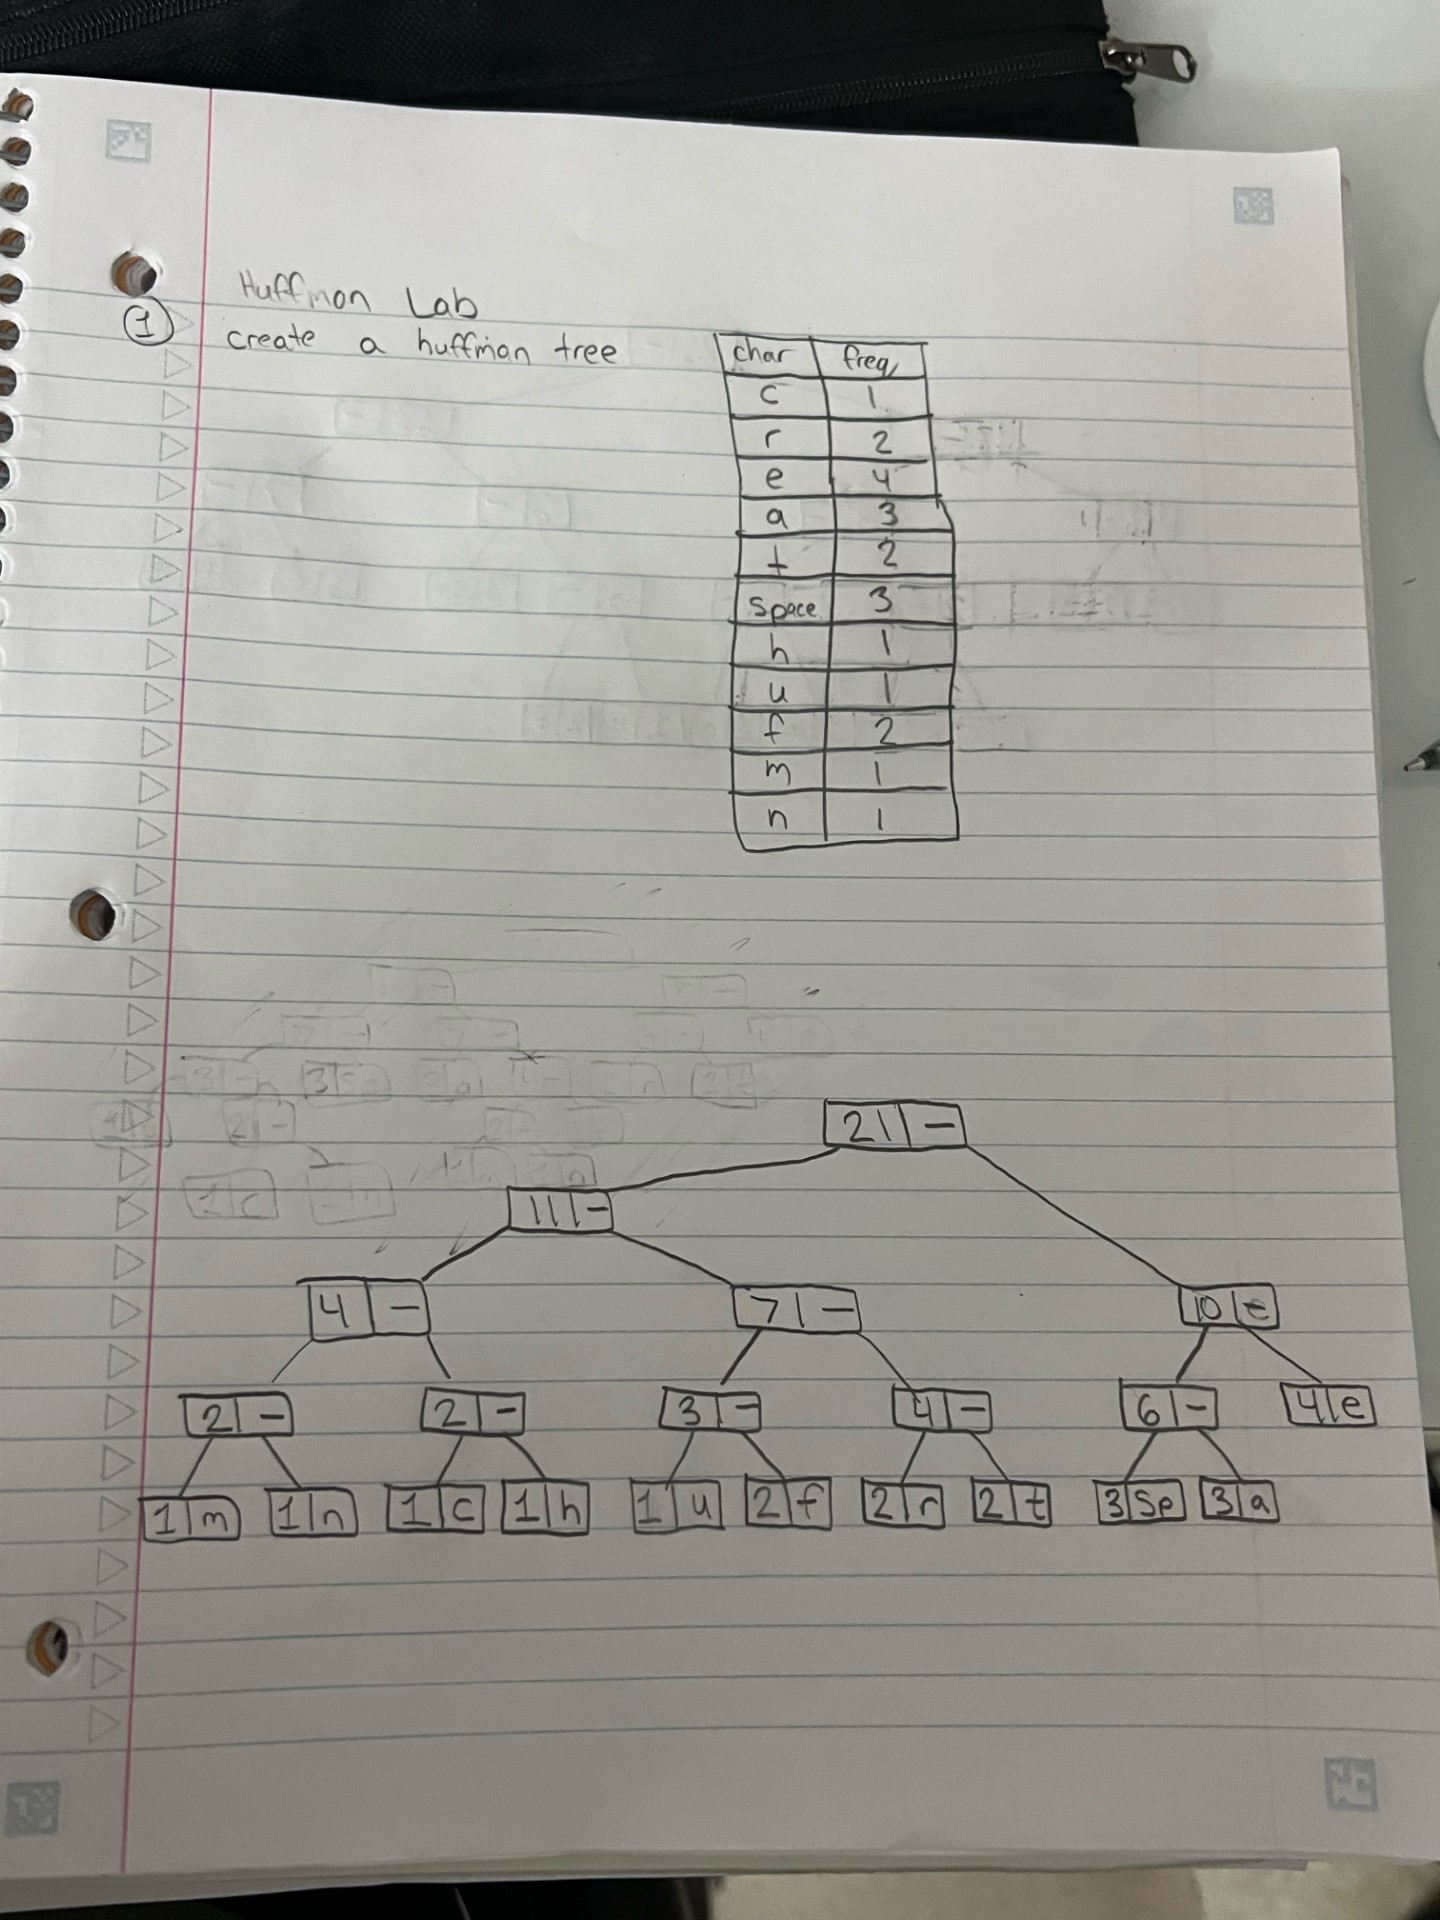 Huffman Lab
1 create a huffman tree
char freq
c 1
r 2
e 4
a 3
t 2
space 3
h 1
u 1
f 2
m 1
n 1
21 -
11 -
4 - 7 - 10 e
2 - 2 - 3 - 4 - 6 - 4 e
1 m 1 n 1 c 1 h 1 u 2 f 2 r 2 t 3 Sp 3 a